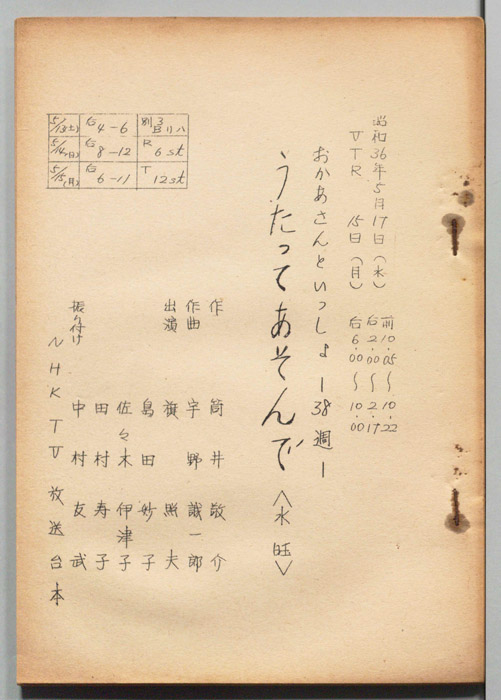 昭和36年5月17日（水） 前10.05～10.22
后2.00～2.17
VTR 15日（月） 后6.00～10.00
おかあさんといっしょ ー38週ー
うたってあそんで〈水旺〉
作 筒井敬介
作曲 宇野誠一郎
出演 旗照夫
島田妙子
佐々木伊津子
田村寿子
振り付け 中村友武
NHKTV放送台本
5/13(土) 后4－6 別3日リハ
5/14(日) 后8－12 R 6st
5/15(月) 后6－11 T 12st